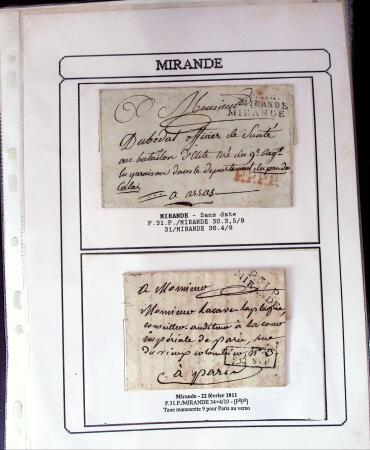 MIRANDE
Monsieur
MIRANDE
MIRANDE
Dubedat officier de Santé
au bataillon d'Elite du 9e Regt
en garnison dans le departement du pas de
Calais
P.P.P.P.
a arras
MIRANDE - Sans date
P.31.P./MIRANDE 30.3,5/9
31/MIRANDE 36.4/9
P.31.P
MIRANDE
a Monsieur
Monsieur Lacave laplagne
conseiller auditeur à la cour
impériale de paris, rue
du vieux colombier, N° 3
à paris
Mirande - 22 février 1811
P.31.P./MIRANDE 34×4/10 - [PPPP]
Taxe manuscrite 9 pour Paris au verso